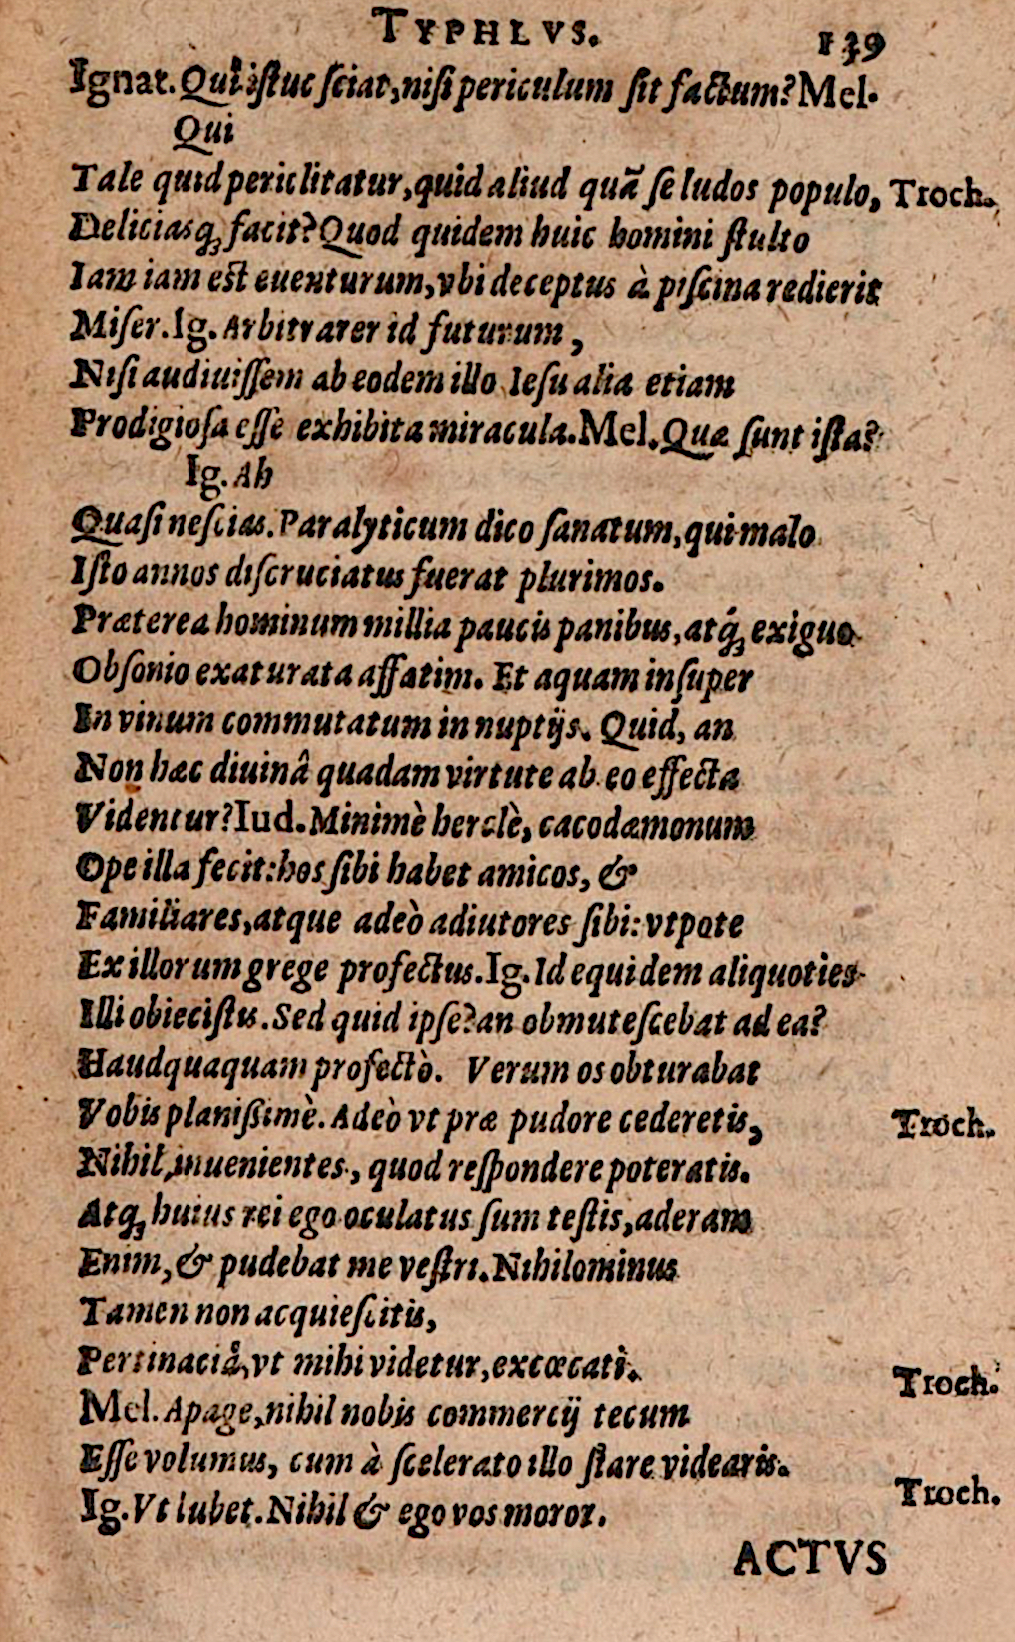 TYPHLVS. 139
Ignat. Quî istuc sciat, nisi periculum sit factum? Mel.
Qui
Tale quid periclitatur, quid aliud quã se ludos populo, Troch.
Deliciasq; facit? Quod quidem huic homini stulto
Iam iam est euenturum, vbi deceptus à piscina redierit
Miser. Ig. Arbitrarer id futurum,
Nisi audiuissem ab eodem illo Iesu alia etiam
Prodigiosa esse exhibita miracula. Mel. Quæ sunt ista?
Ig. Ah
Quasi nescias. Paralyticum dico sanatum, qui malo
Isto annos discruciatus fuerat plurimos.
Præterea hominum millia paucis panibus, atq́; exiguo
Obsonio exaturata affatim. Et aquam insuper
In vinum commutatum in nuptijs. Quid, an
Non hæc diuinâ quadam virtute ab eo effecta
Videntur? Iud. Minimè herclè, cacodæmonum
Ope illa fecit: hos sibi habet amicos, &
Familiares, atque adeò adiutores sibi: vtpote
Ex illorum grege profectus. Ig. Id equidem aliquoties
Illi obiecistis. Sed quid ipse? an obmutescebat ad ea?
Haudquaquam profectò. Verum os obturabat
Vobis planissimè. Adeò vt præ pudore cederetis, Troch.
Nihil inuenientes, quod respondere poteratis.
Atq; huius rei ego oculatus sum testis, aderam
Enim, & pudebat me vestri. Nihilominus
Tamen non acquiescitis,
Pertinaciâ, vt mihi videtur, excœcati. Troch.
Mel. Apage, nihil nobis commercij tecum
Esse volumus, cum à scelerato illo stare videaris.
Ig. Vt lubet. Nihil & ego vos moror. Troch.
ACTVS